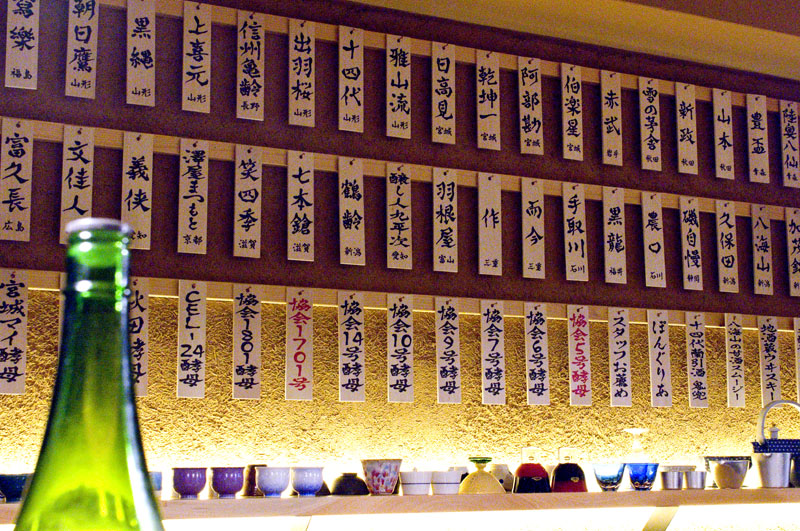 陸奥八仙 青森
豊盃 青森
山本 秋田
新政 秋田
雪の茅舎 秋田
赤武 岩手
伯楽星 宮城
阿部勘 宮城
乾坤一 宮城
日高見 宮城
雅山流 山形
十四代 山形
出羽桜 山形
信州亀齢 長野
上喜元 山形
黒縄 山形
朝日鷹 山形
寫樂 福島
加茂錦 新潟
八海山 新潟
久保田 新潟
磯自慢 静岡
農口 石川
黒龍 福井
手取川 石川
而今 三重
作 三重
羽根屋 富山
醸し人九平次 愛知
鶴齢 新潟
七本鎗 滋賀
笑四季 滋賀
澤屋まつもと 京都
義侠 愛知
文佳人
富久長 広島
地酒蔵ウヰスキー
八海山の甘酒スムージー
十四代蘭引酒鬼兜
ぽんぐりあ
スタッフお薦め
協会5号酵母
協会6号酵母
協会7号酵母
協会9号酵母
協会10号酵母
協会14号酵母
協会1701号
協会1801酵母
CEL-24酵母
秋田酵母
宮城マイ酵母